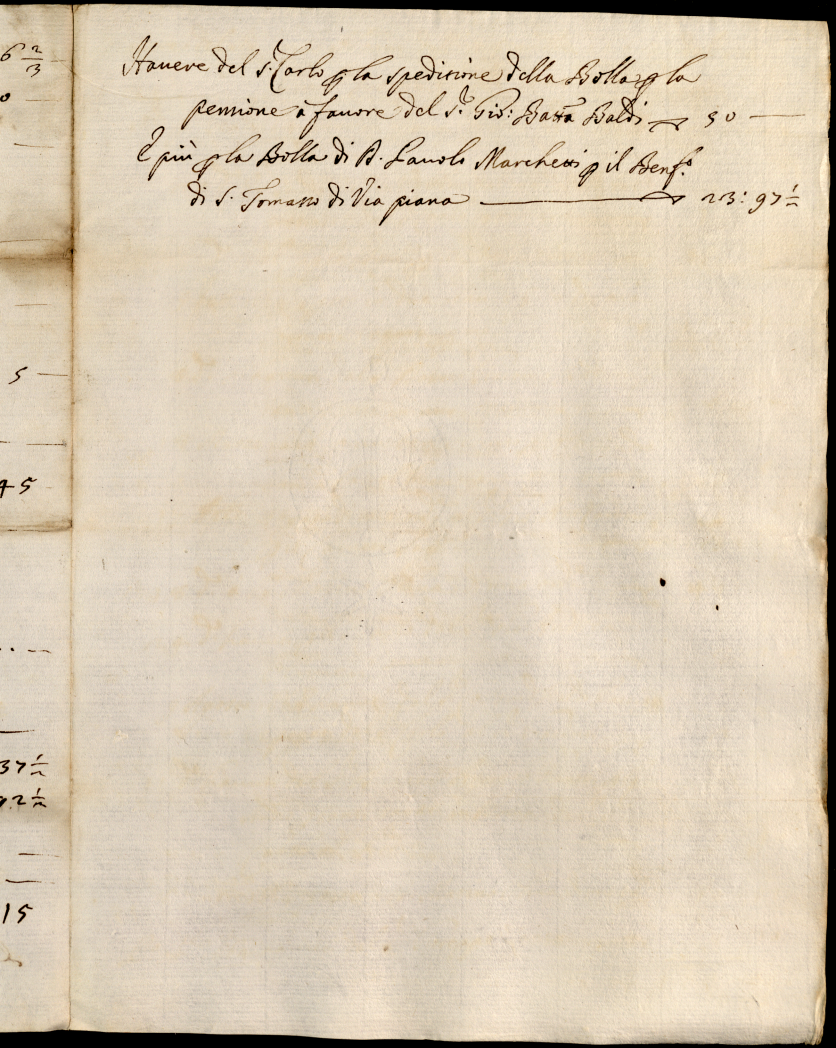 6 2/3
0 —
5 —
45
37 1/2
92 1/2
15
Havere del S.r Carlo p la spedizione della Bolla p la
pensione à favore del S.r Gio: Batta Baldi — 50 —
E più p la Bolla di D. Pauolo Marchetti p il Benf.o
di S. Tomasso di Via piana — 23: 97 1/2